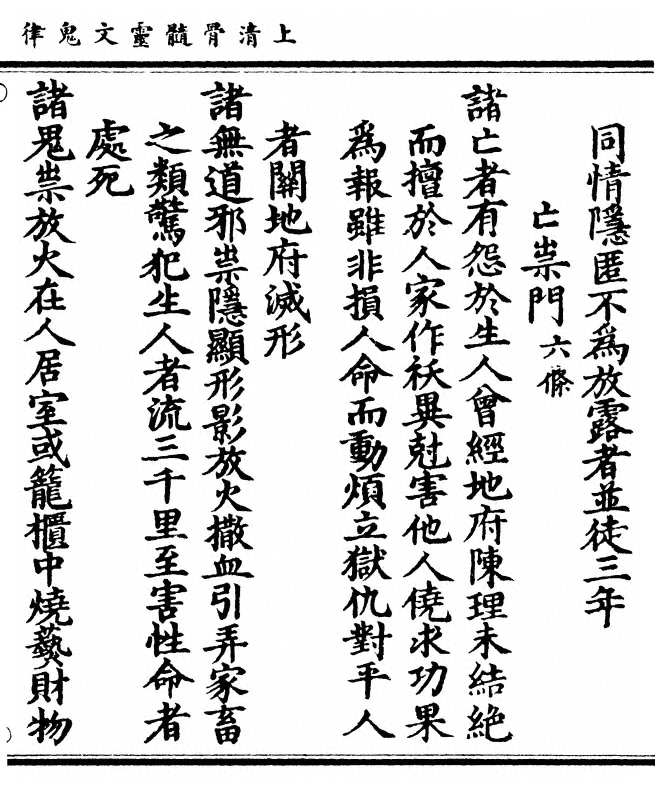 上清骨髓靈文鬼律
同情隱匿不爲放露者並徒三年
亡祟門六條
諸亡者有怨於生人曾經地府陳理未結絕
而擅於人家作祅異尅害他人僥求功果
爲報雖非損人命而動煩立獄仇對平人
者關地府滅形
諸無道邪祟隱顯形影放火撒血引弄家畜
之類驚犯生人者流三千里至害性命者
處死
諸鬼祟放火在人居室或籠櫃中燒爇財物